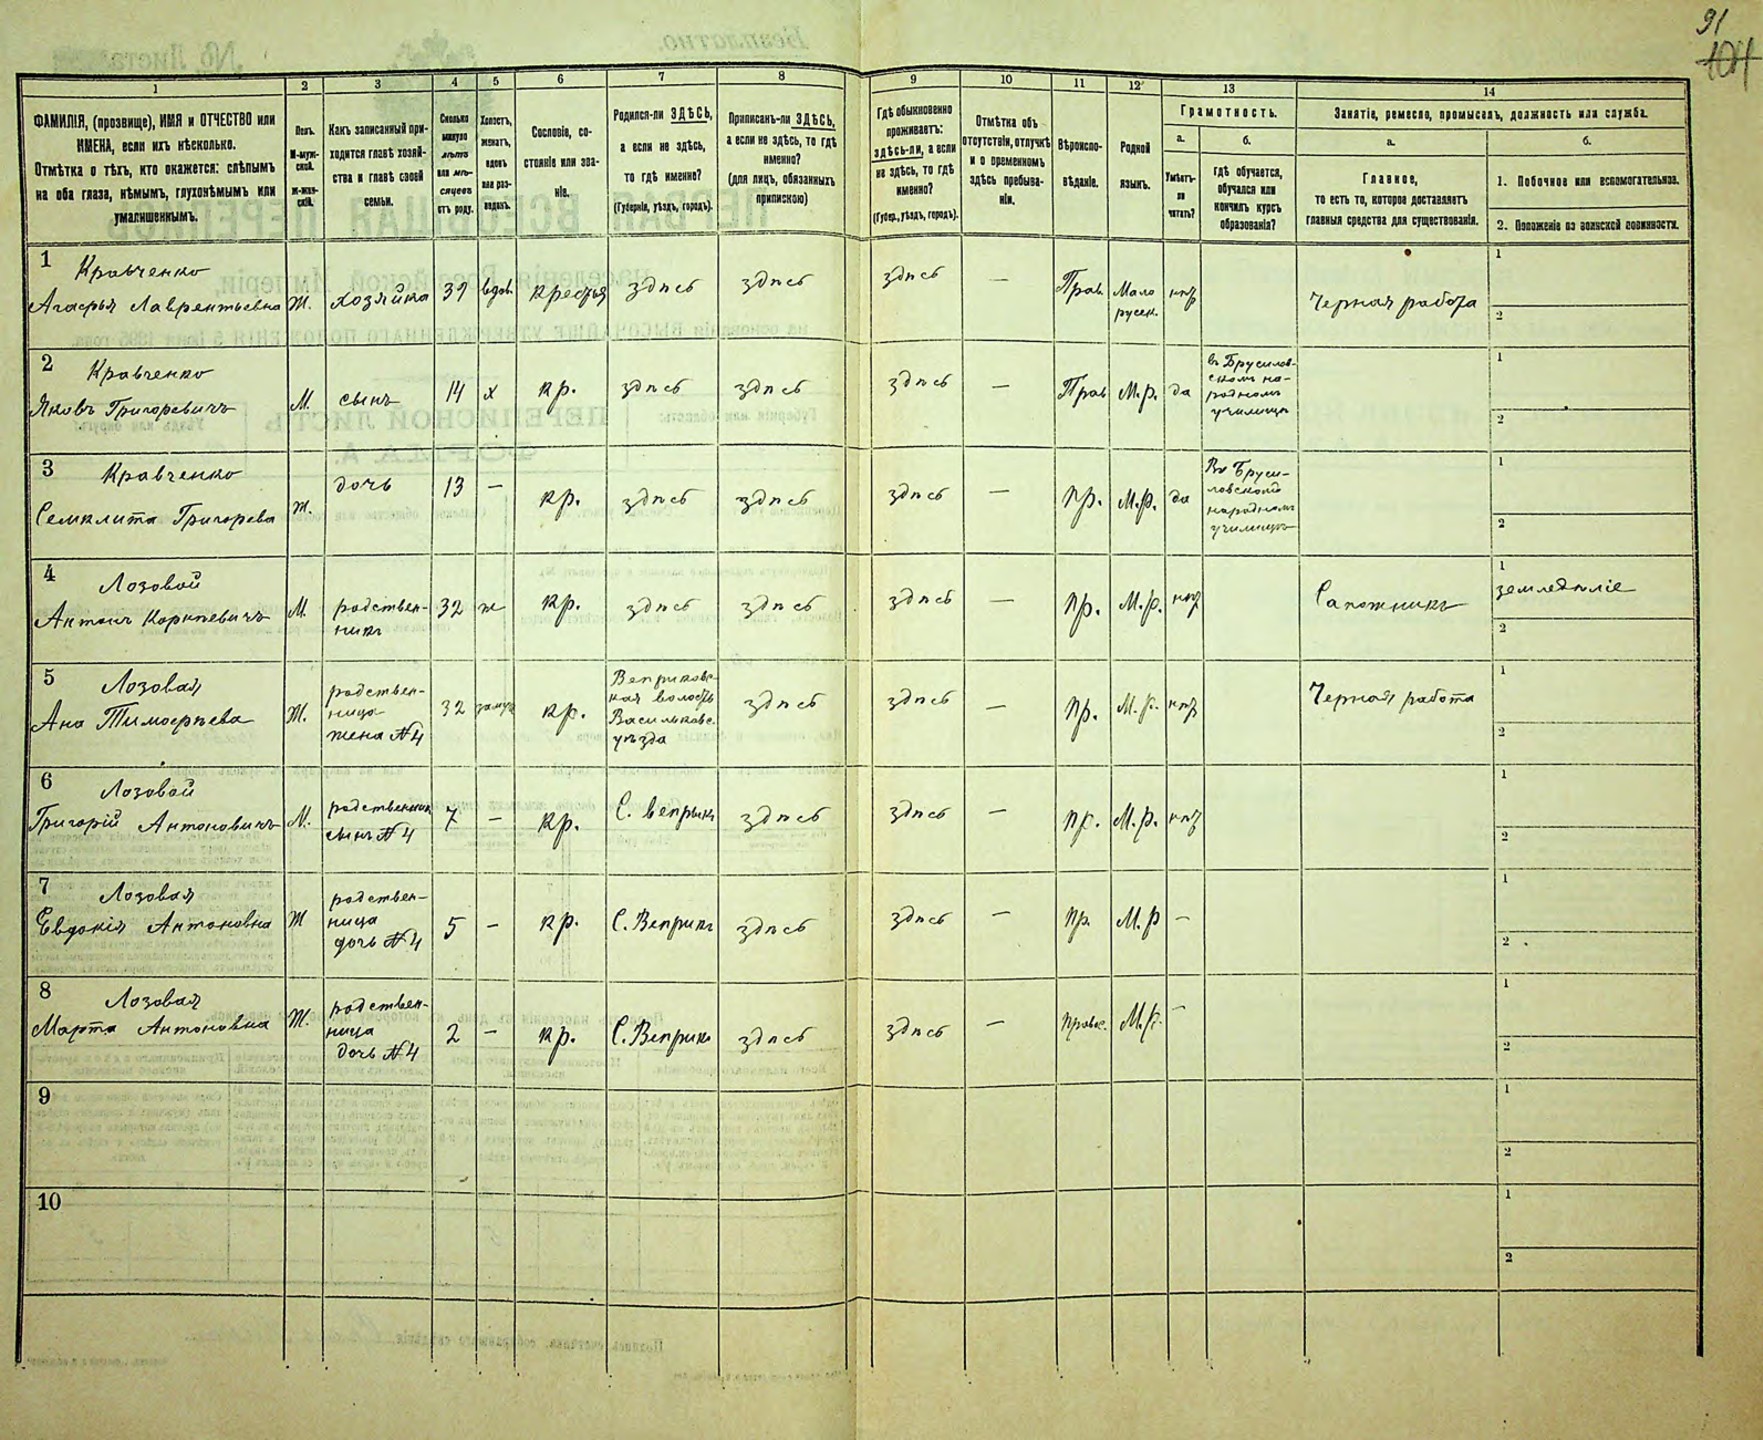 91
104
1
2
3
4
5
6
7
8
9
10
11
12
13
14
ФАМИЛІЯ, (прозвище), ИМЯ и ОТЧЕСТВО или
ИМЕНА, если ихъ нѣсколько.
Отмѣтка о тѣхъ, кто окажется: слѣпымъ
на оба глаза, нѣмымъ, глухонѣмымъ или
умалишеннымъ.
Полъ.
М-муж-
ской.
ж-жен-
скій.
Какъ записанный при-
ходится главѣ хозяй-
ства и главѣ своей
семьи.
Сколько
минуло
лѣтъ
или мѣ-
сяцевъ
отъ роду.
Холостъ,
женатъ,
вдовъ
или раз-
веденъ.
Сословіе, со-
стояніе или зва-
ніе.
Родился-ли ЗДѢСЬ,
а если не здѣсь,
то гдѣ именно?
(Губернія, уѣздъ, городъ).
Приписанъ-ли ЗДѢСЬ,
а если не здѣсь, то гдѣ
именно?
(для лицъ, обязанныхъ
припискою)
Гдѣ обыкновенно
проживаетъ:
здѣсь-ли, а если
не здѣсь, то гдѣ
именно?
(Губер., уѣздъ, городъ).
Отмѣтка объ
отсутствіи, отлучкѣ
и о временномъ
здѣсь пребыва-
ніи.
Вѣроиспо-
вѣданіе.
Родной
языкъ.
Грамотность.
а.
Умѣетъ-
ли
читать?
б.
гдѣ обучается,
обучался или
кончилъ курсъ
образованія?
Занятіе, ремесло, промыселъ, должность или служба.
а.
Главное,
то есть то, которое доставляетъ
главныя средства для существованія.
б.
1. Побочное или вспомогательное.
2. Положеніе по воинской повинности.
1
Кравченко
Агафья Лаврентьевна
Ж.
хозяйка
39
вдов.
крестья
здѣсь
здѣсь
здѣсь
—
Прав.
Мало
русск.
нѣт
Черная работа
1
2
2
Кравченко
Яковъ Григоревичъ
М.
сынъ
14
х
кр.
здѣсь
здѣсь
здѣсь
—
Прав
М.р.
да
въ Брусилов-
скомъ на-
родномъ
училищѣ
1
2
3
Кравченко
Семклита Григорева
Ж.
дочь
13
—
кр.
здѣсь
здѣсь
здѣсь
—
пр.
М.р.
да
Въ Бруси-
ловскомъ
народномъ
училищѣ
1
2
4
Лозовой
Антонъ Корнѣевичъ
М.
родствен-
никъ
32
ж
кр.
здѣсь
здѣсь
здѣсь
—
пр.
М.р.
нѣт
Сапожникъ
1
земледѣліе
2
5
Лозовая
Ана Тимофѣева
Ж.
родствен-
ница
жена №4
32
замуж
кр.
Веприковс-
кая волость
Васильковс.
уѣзда
здѣсь
здѣсь
—
пр.
М.р.
нѣт
Черная работа
1
2
6
Лозовой
Григорій Антоновичъ
М.
родственник
сынъ №4
7
—
кр.
С. Веприкъ
здѣсь
здѣсь
—
пр.
М.р.
нѣт
1
2
7
Лозовая
Евдокія Антоновна
Ж
родствен-
ница
дочь №4
5
—
кр.
С. Веприкъ
здѣсь
здѣсь
—
пр.
М.р
—
1
2
8
Лозовая
Марта Антоновна
Ж.
родствен-
ница
дочь №4
2
—
кр.
С. Веприкъ
здѣсь
здѣсь
—
правос.
М.р.
—
1
2
9
1
2
10
1
2